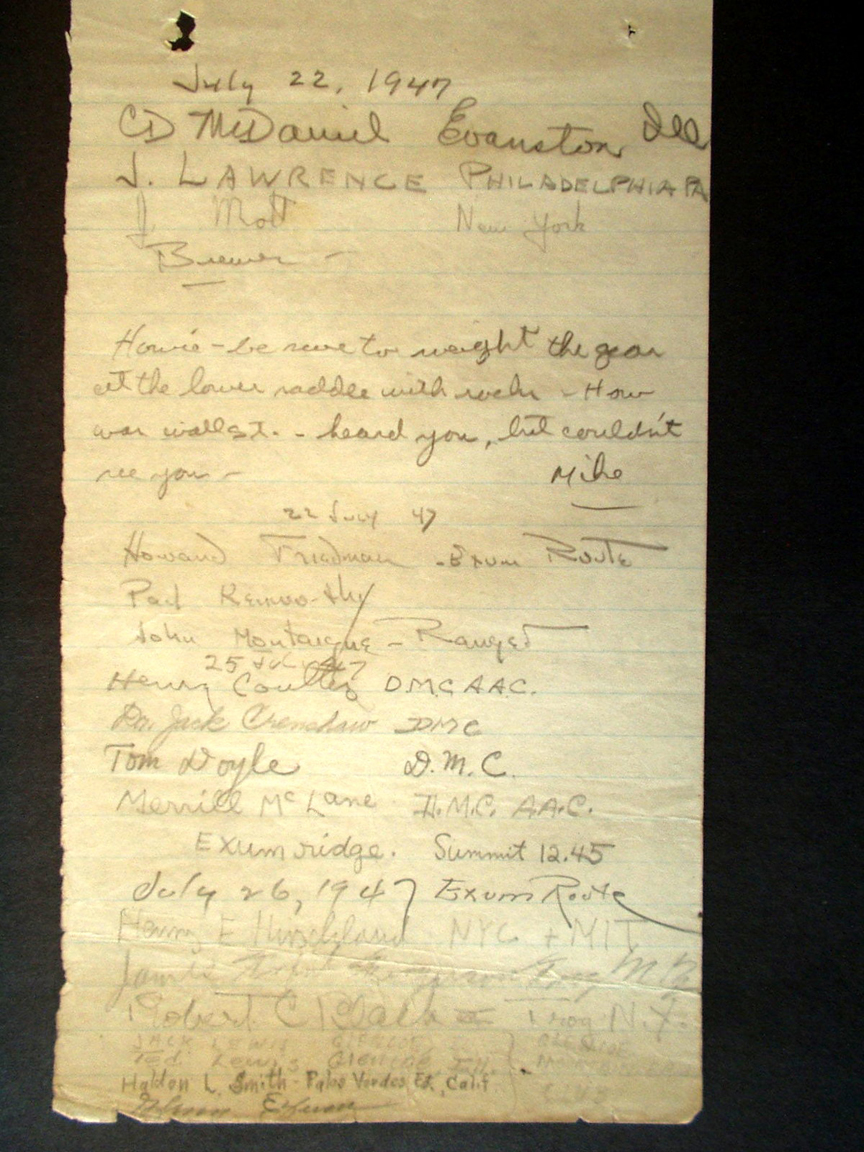 July 22, 1947
CD McDaniel Evanston Ill
J. LAWRENCE PHILADELPHIA PA
J Mott New York
Brewer -
Howie - be sure to weight the gear
at the lower saddle with rocks - How
was wall st. - heard you, but couldn't
see you -
Mike
22 July 47
Howard Friedman - Exum Route
Paul Kenworthy
John Montaigne - Ranger
25 July 47
Henry Coulter D.M.C. A.A.C.
Dr. Jack Crenshaw DMC
Tom Doyle D.M.C.
Merrill McLane D.M.C. A.A.C.
Exum ridge. Summit 12.45
July 26, 1947 Exum Route
Henry E NYC + MIT
Robert C N.Y.
JACK LEWIS
Ted Lewis Glencoe Ill.
Haldon L. Smith - Palos Verdes Es., Calif.
Glenn Exum